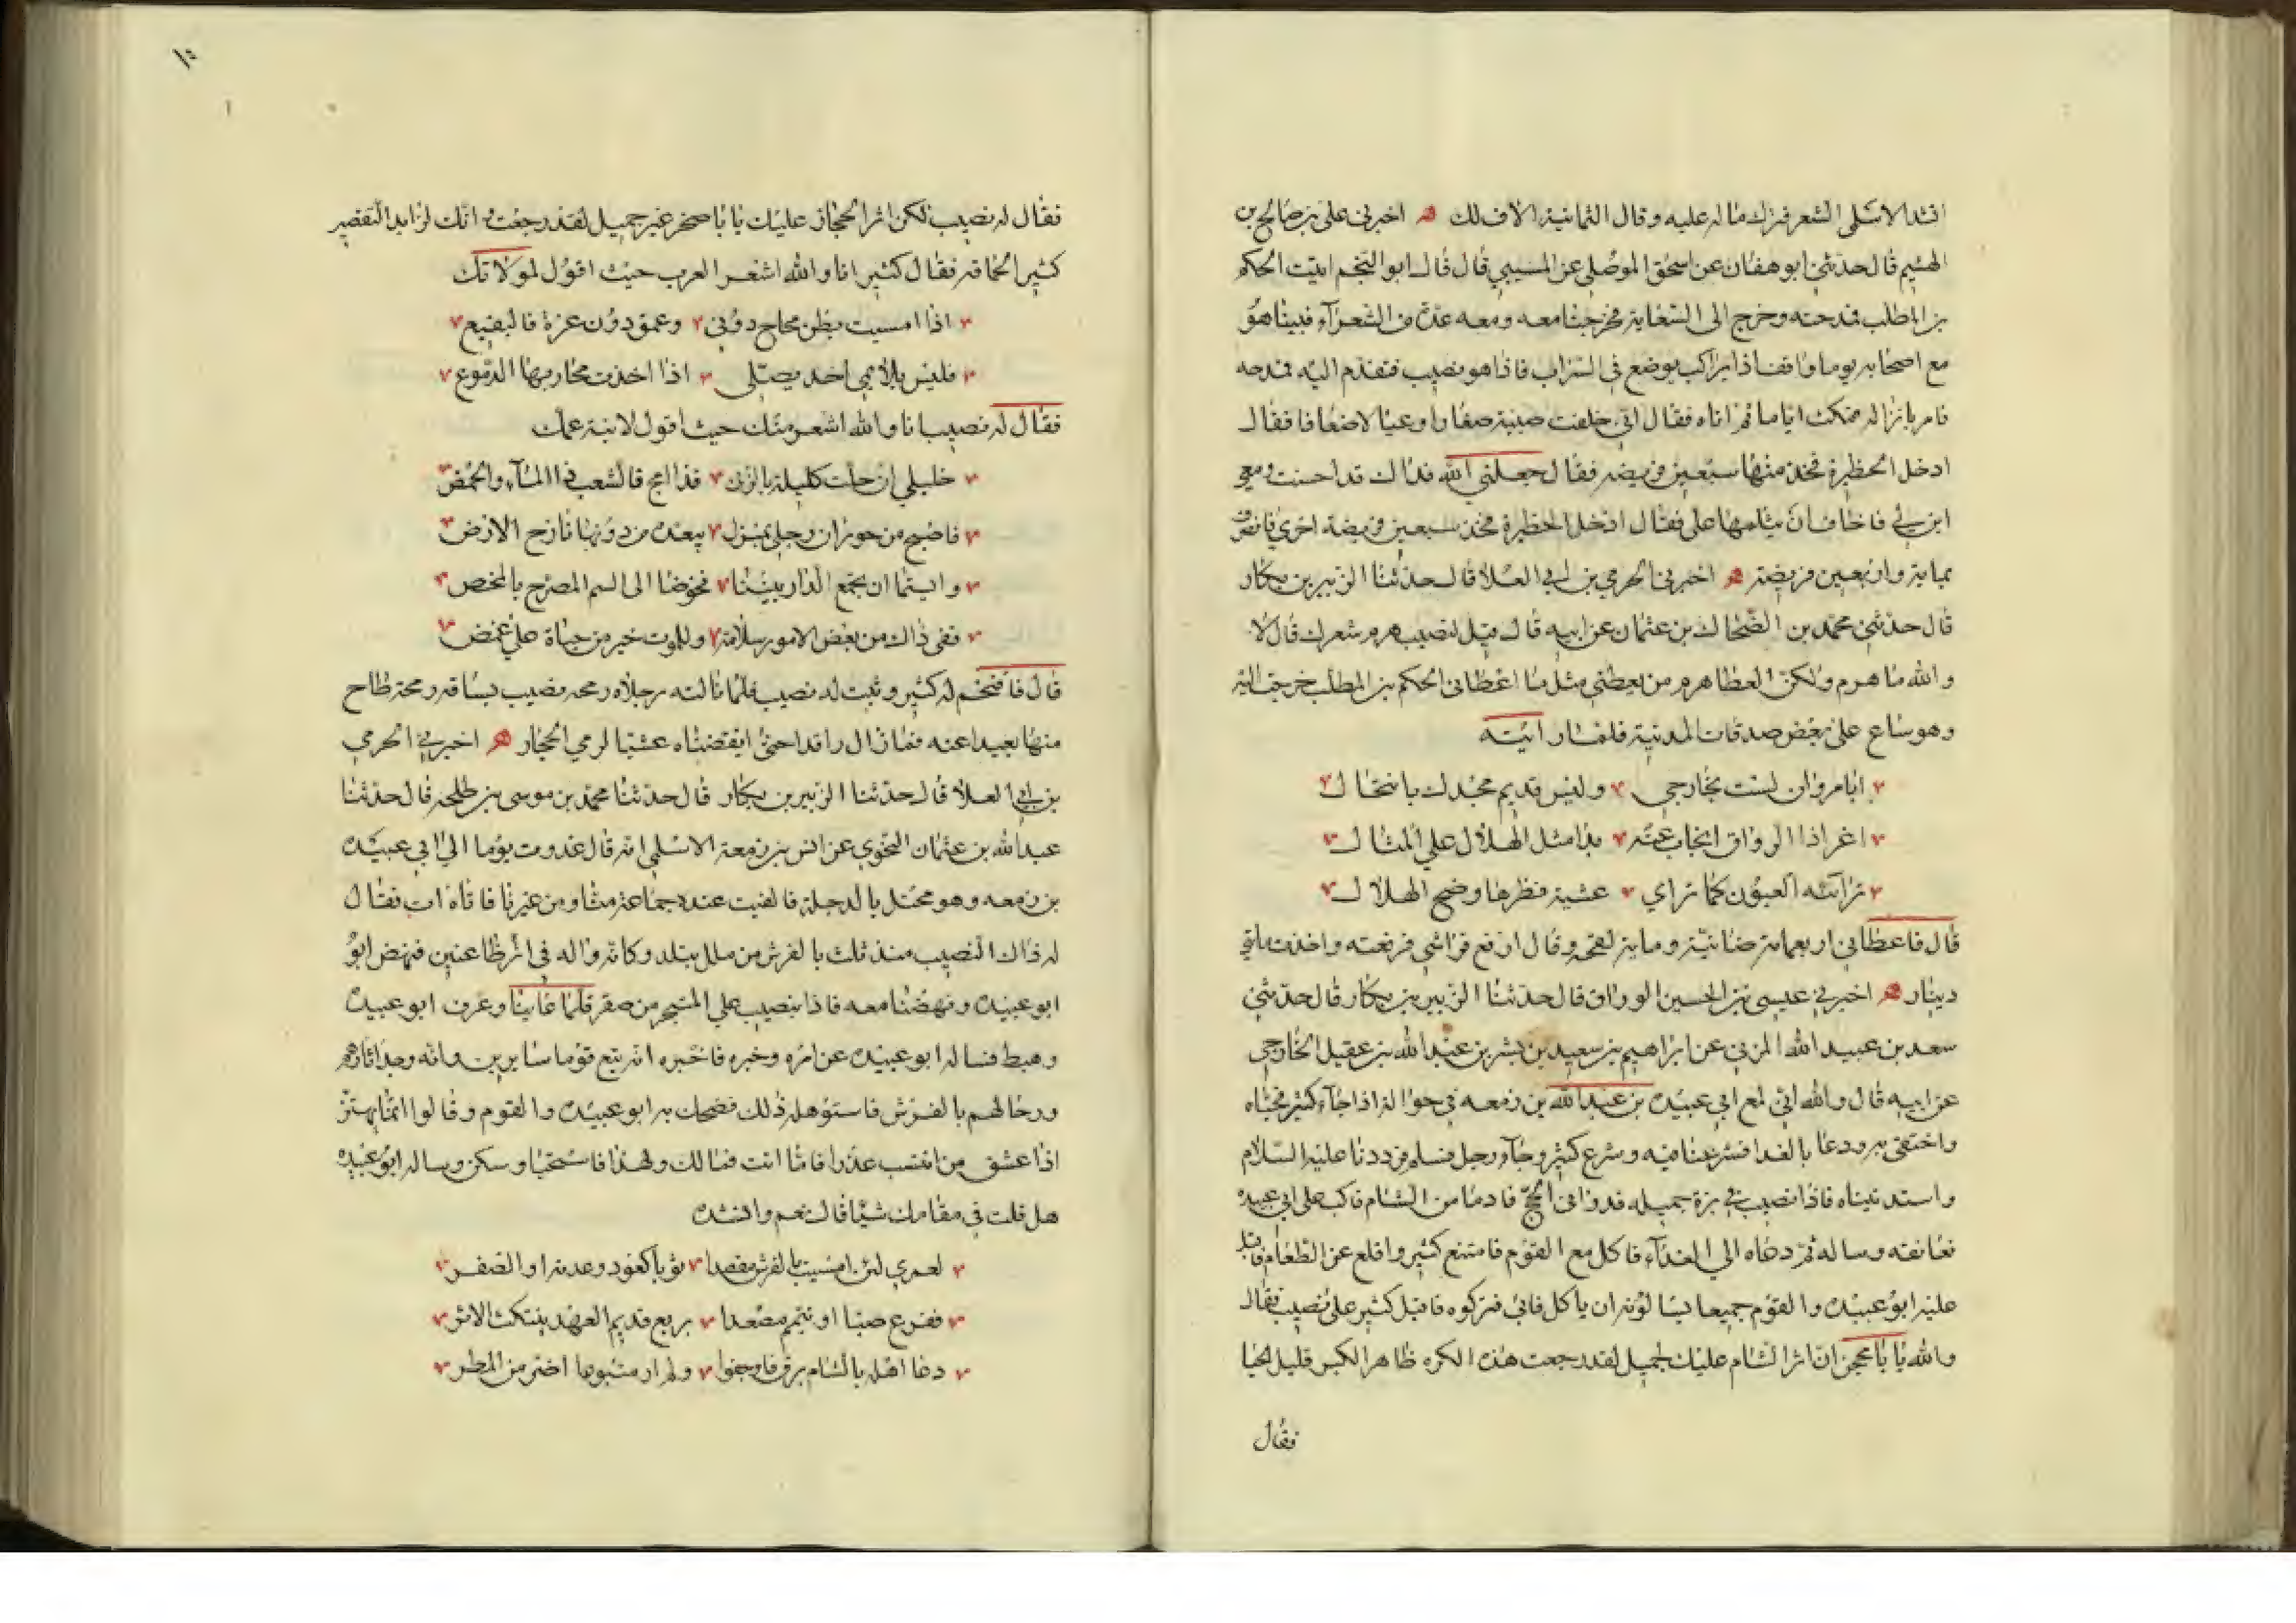 انشد الاسلمى الشعر فترك ماله عليه وقال الثمانية الاف لك ۞ اخبرنى على بن صالح بن
الهيثم قال حدثنى ابو هفان عن اسحق الموصلى عن المسيبى قال قال ابو النجم اتيت الحكم
بن المطلب فمدحته وخرج الى السعاية فخرجنا معه ومعه عدة من الشعرآء فبينا هو
مع اصحابه يوما واقف اذا براكب يوضع فى السراب فاذا هو نصيب فتقدم اليه فمدحه
فامر بانزاله فمكث اياما ثم اتاه فقال انى خلفت صبية صغارا وعيالا ضعافا فقال
ادخل الحظيرة فخذ منها سبعين فريضة فقال جعلنى الله فداك قد احسنت ومعى
ابن لى فاخاف ان يثلمها على فقال ادخل الحظيرة فخذ سبعين فريضة اخرى فانصرف
بماية واربعين فريضة ۞ اخبرنى الحرمي بن ابى العلا قال حدثنا الزبير بن بكار
قال حدثنى محمد بن الضحاك بن عثمان عن ابيه قال قيل لنصيب هرم شعرك قال لا
والله ما هرم ولكن العطا هرم من يعطنى مثل ما اعطانى الحكم بن المطلب خرجت اليه
وهو ساع على بعض صدقات المدينة فلما رايته
ابا مروان لست بخارجي وليس قديم مجدك بانتحال
اغر اذا الرواق انجاب عنه بدا مثل الهلال على المثال
ترآئه العيون كما تراى عشية فطرها وضح الهلال
قال فاعطانى اربعماية ضانية وماية لقحة وقال ارفع فراشي فرفعته واخذت مايتى
دينار ۞ اخبرنى عيسى بن الحسين الوراق قال حدثنا الزبير بن بكار قال حدثنى
سعد بن عبيد الله المزنى عن ابراهيم بن سعيد بن بشر بن عبد الله بن عقيل الخارجى
عن ابيه قال والله انى لمع ابى عبيدة بن عبد الله بن زمعه فى حوا له اذا جآء كثير فحياه
واحتفى به ودعا بالغدا فشرعنا فيه وشرع كثير وجآء رجل فسلم فرددنا عليه السلام
واستدنيناه فاذا نصيب فى بزة جميله قد وافى الحج قادما من الشام فاكب على ابى عبيدة
فعانقه وساله ثم دعاه الى الغدآء فاكل مع القوم فامتنع كثير واقلع عن الطعام فاقبل
عليه ابو عبيدة والقوم جميعا يسالونه ان ياكل فابى فتركوه فاقبل كثير على نصيب فقال
والله يا با محجن ان اثر الشام عليك لجميل لقد رجعت هذه الكره ظاهر الكبر قليل الحيا
فقال
١٠
فقال له نصيب لكن اثر الحجاز عليك يا با صخر غير جميل لقد رجعت و انك لزايد التقصير
كثير الحماقه فقال كثير انا والله اشعر العرب حيث اقول لمولاتك
اذا امسيت بطن مجاح دونى وعمق دون عزة فالبقيع
فليس بلايمي احد يصلى اذا اخذت مجاريها الدموع
فقال له نصيب انا والله اشعر منك حيث اقول لابنة عمك
خليلي ان حلت كليلة بالربى فذا امج فالشعب ذا المآء والحمض
فاصبح من حوران رحلى بمنزل يبعده من دونها نازح الارض
وايستما ان يجمع الدار بيننا فخوضا الى السم المصرح بالمحض
ففى ذاك من بعض الامور سلامة وللموت خير من حياة على غمض
قال فاقتحم له كثير وثبت له نصيب فلما نالته رجلاه رمحه نصيب بساقه رمحة طاح
منها بعيدا عنه فما زال راقدا حتى ايقضناه عشيا لرمي الجمار ۞ اخبرنى الحرمى
بن ابى العلا قال حدثنا الزبير بن بكار قال حدثنا محمد بن موسى بن طلحه قال حدثنا
عبد الله بن عثمان النحوي عن انس بن زمعة الاسلمى انه قال غدوت يوما الى ابى عبيده
بن زمعه وهو محتل بالدجلة فالفيت عنده جماعة منا ومن غيرنا فاتاه ات فقال
له ذاك النصيب منذ ثلث بالفرش من ملل متلد وكانه واله فى اثر ظاعنين فنهض ابو
ابو عبيدة ونهضنا معه فاذا نصيب على المنبجر من صفر فلما عاينا وعرف ابو عبيدة
وهبط فساله ابو عبيدة عن امره وخبره فاخبره انه تبع قوما سايرين وانه وجد اثارهم
ومحالهم بالفرش فاستولهه ذلك فضحك به ابو عبيدة والقوم وقالوا انما يهتر
اذا عشق من انتسب عذرا فاما انت فمالك ولهذا فاستحيا وسكن وساله ابو عبيدة
هل قلت فى مقامك شيا قال نعم وانشده
لعمري لئن امسيت بالفرش مقصدا ثويا كعود وعدنه او الضفر
ففرع صبا او تيمم مصعدا بربع قديم العهد ينتكث الاثر
دعا اهله بالشام برق فاوجفوا ولم ار متبوعا اضر من المطر